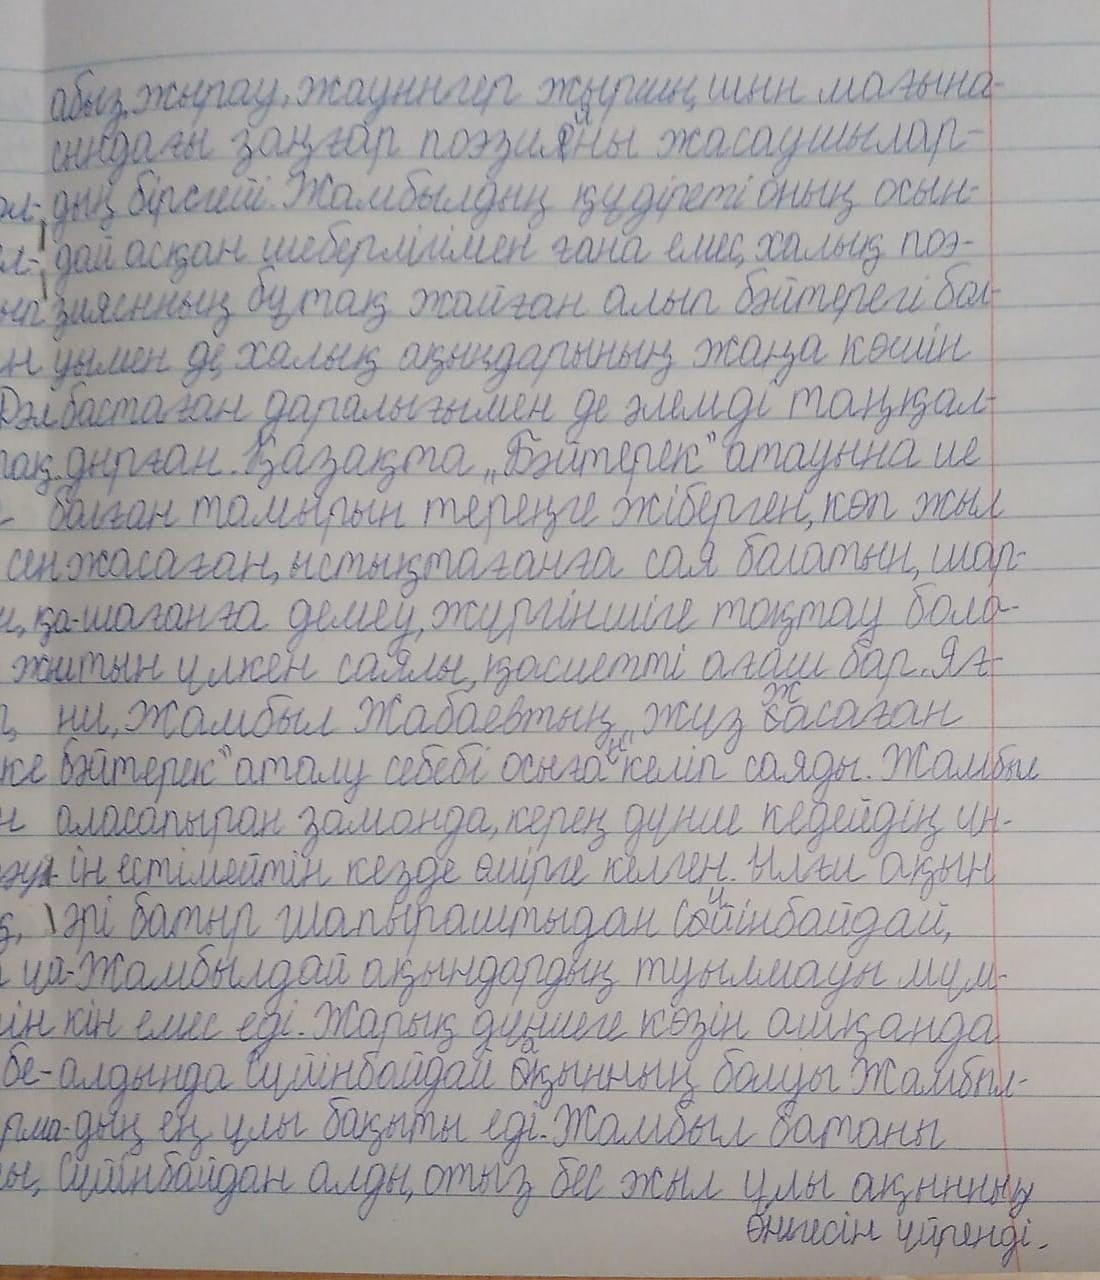 абыз, жырау, жауынгер жыршы, шын мағына-
сындағы заңғар поэзияны жасаушылар-
дың бірегейі. Жамбылдың құдіреті оның осын-
дай асқан шеберлігімен ғана емес, халық поэ-
зиясының бұтақ жайған алып бәйтерегі бол-
уымен де, халық ақындарының жаңа көшін
бастаған даралығымен де әлемді таңқал-
дырған. Қазақта „Бәйтерек" атауына ие
болған тамырын тереңге жіберген, көп жыл
жасаған, ыстықтағанға сая болатын, шар-
шағанға демеу, жүргіншіге тоқтау бола-
тын үлкен саялы, қасиетті ағаш бар. Яғ-
ни, Жамбыл Жабаевтың „жүз жасаған
бәйтерек" аталу себебі осыған келіп саяды. Жамбыл
аласапыран заманда, керең дүние кедейдің үн-
ін естімейтін кезде өмірге келген. Ылғи ақын
әрі батыр шапыраштыдан Сүйінбайдай,
Жамбылдай ақындардың туылмауы мүм-
кін емес еді. Жарық дүниеге көзін ашқанда
алдында Сүйінбайдай ақынның болуы Жамбыл-
дың ең ұлы бақыты еді. Жамбыл батаны
Сүйінбайдан алды, отыз бес жыл ұлы ақынның
өнегесін үйренді.